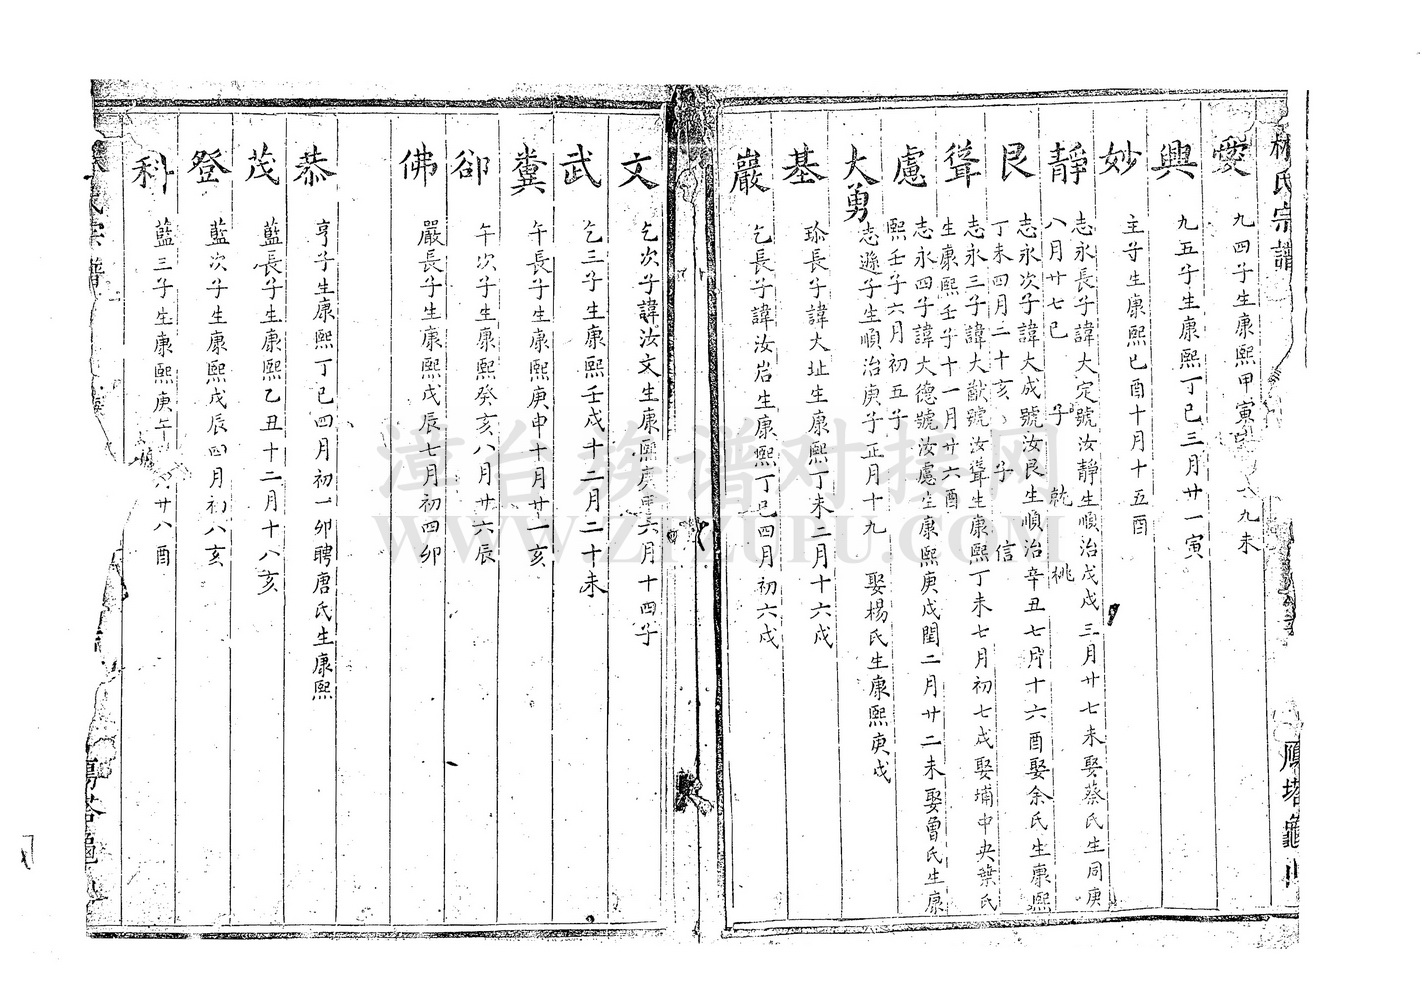 林氏宗譜
雁塔龜山
愛 九四子生康熙甲寅 九未
興 九五子生康熙丁巳三月廿一寅
妙 主子生康熙己酉十月十五酉
靜 志永長子諱大定號汝靜生順治戊戌三月廿七未娶蔡氏生同庚
八月廿七巳 子 就 桃
艮 志永次子諱大成號汝艮生順治辛丑七月十六酉娶余氏生康熙
丁未四月二十亥 子 信
聳 志永三子諱大猷號汝聳生康熙丁未七月初七戌娶埔中央葉氏
生康熙壬子十一月廿六酉
慮 志永四子諱大德號汝慮生康熙庚戌閏二月廿二未娶曾氏生康
熙壬子六月初五子
大勇 志遜子生順治庚子正月十九 娶楊氏生康熙庚戌
基 珎長子諱大址生康熙丁未二月十六戌
巖 乞長子諱汝岩生康熙丁巳四月初六戌
文 乞次子諱汝文生康熙庚申六月十四子
武 乞三子生康熙壬戌十二月二十未
糞 午長子生康熙庚申十月廿一亥
郤 午次子生康熙癸亥八月廿六辰
佛 嚴長子生康熙戊辰七月初四卯
恭 亨子生康熙丁巳四月初一卯聘唐氏生康熙
茂 藍長子生康熙乙丑十二月十八亥
登 藍次子生康熙戊辰四月初八亥
科 藍三子生康熙庚午 廿八酉
氏宗譜
雁塔龜山
漳台族谱对接网
WWW.ZTZUPU.COM